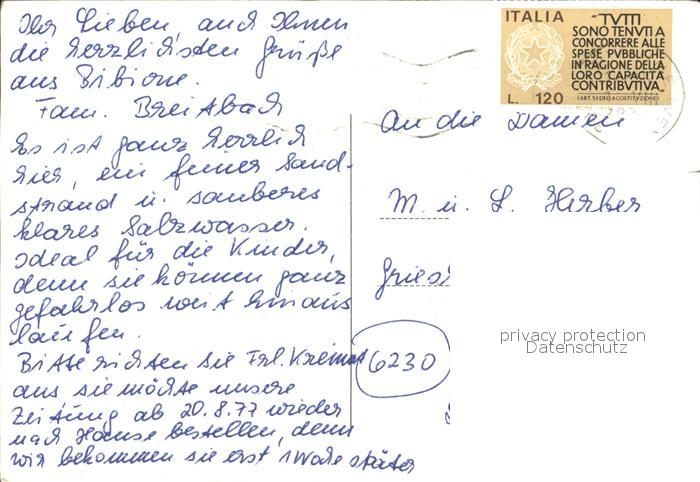 Ihr Lieben, auch Ihnen
die herzlichsten Grüße
aus Bibione.
Fam. Breitbach
Es ist ganz herrlich
hier, ein feiner Sand-
strand u. sauberes
klares Salzwasser.
Ideal für die Kinder,
denn sie können ganz
gefahrlos weit hinaus
laufen.
Bitte richten sie Frl.
aus sie möchte unsere
Zeitung ab 20.8.77 wieder
nach Hause bestellen, denn
wir bekommen sie erst 1 Woche später
ITALIA
"TVTTI
SONO TENVTI A
CONCORRERE ALLE
SPESE PVBBLICHE
IN RAGIONE DELLA
LORO CAPACITÀ
CONTRIBVTIVA."
(ART. 53 DELLA COSTITVZIONE)
L. 120
An die Damen
M. u. L. Herber
Gries
6230
privacy protection
Datenschutz